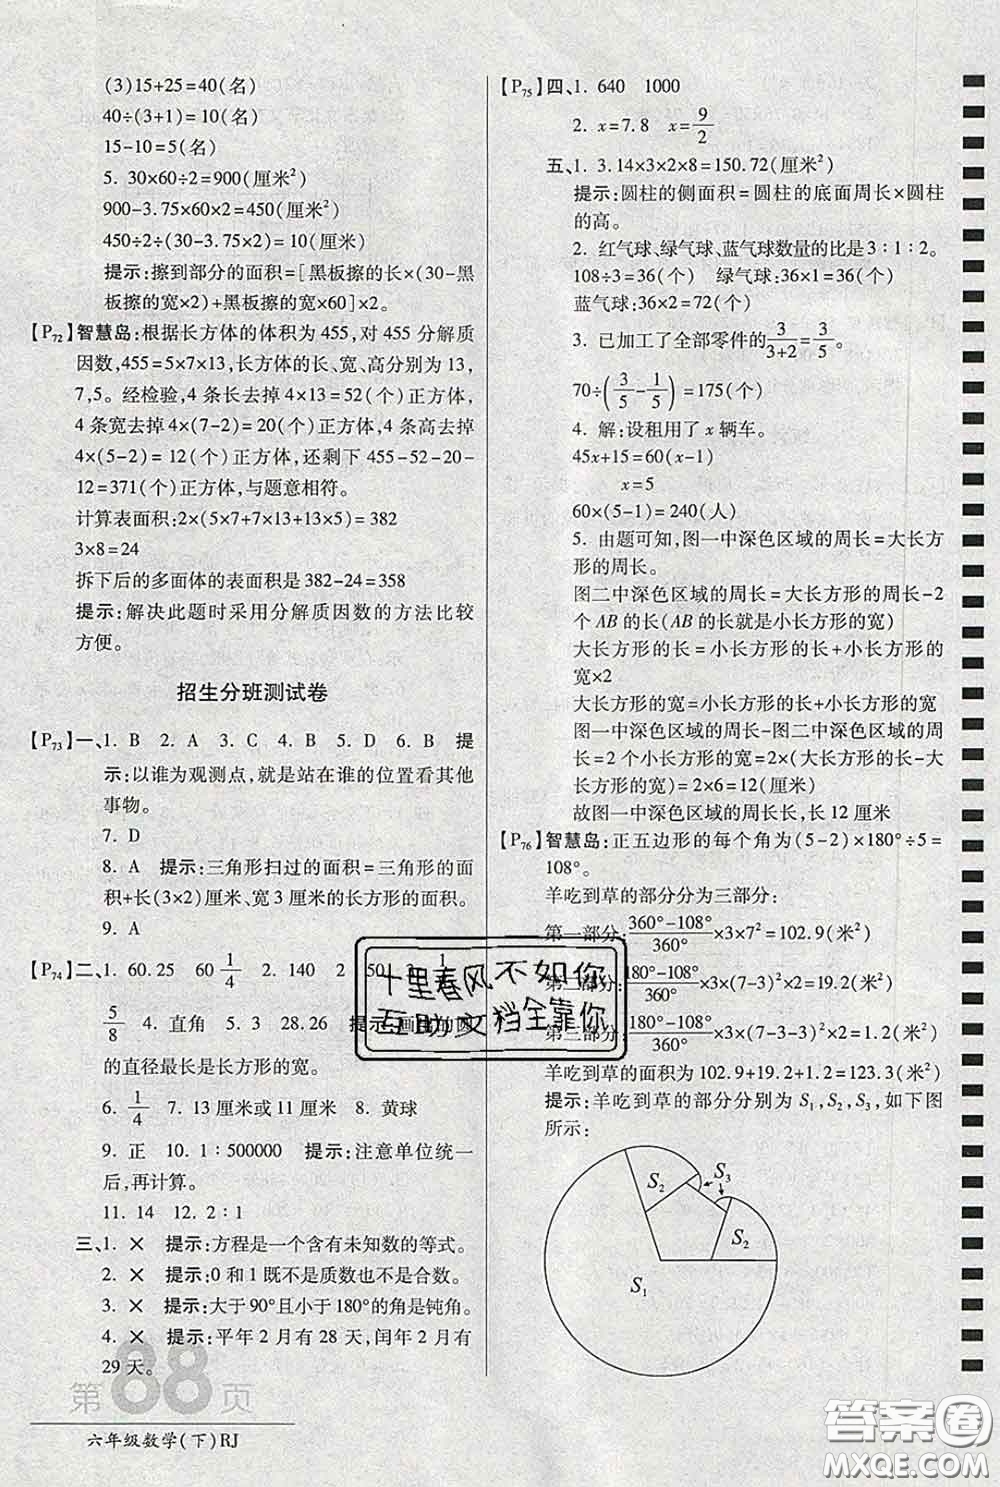 (3)15+25=40(名)
40÷(3+1)=10(名)
15-10=5(名)
5. 30×60÷2=900(厘米²)
900-3.75×60×2=450(厘米²)
450÷2÷(30-3.75×2)=10(厘米)
提示:擦到部分的面积=[黑板擦的长×(30-黑
板擦的宽×2)+黑板擦的宽×60]×2。
【P72】智慧岛:根据长方体的体积为455,对455分解质
因数,455=5×7×13,长方体的长、宽、高分别为13,
7,5。经检验,4条长去掉4×13=52(个)正方体,
4条宽去掉4×(7-2)=20(个)正方体,4条高去掉
4×(5-2)=12(个)正方体,还剩下455-52-20-
12=371(个)正方体,与题意相符。
计算表面积:2×(5×7+7×13+13×5)=382
3×8=24
拆下后的多面体的表面积是382-24=358
提示:解决此题时采用分解质因数的方法比较
方便。
招生分班测试卷
【P73】一、1. B 2. A 3. C 4. B 5. D 6. B 提
示:以谁为观测点,就是站在谁的位置看其他
事物。
7. D
8. A 提示:三角形扫过的面积=三角形的面
积+长(3×2)厘米、宽3厘米的长方形的面积。
9. A
【P74】二、1. 60.25 60 1/4 2. 140 2 50 3. 1/8
5/8 4. 直角 5. 3 28.26 提示:画出的圆
的直径最长是长方形的宽。
6. 1/4 7. 13厘米或11厘米 8. 黄球
9. 正 10. 1:500000 提示:注意单位统一
后,再计算。
11. 14 12. 2:1
三、1. × 提示:方程是一个含有未知数的等式。
2. × 提示:0和1既不是质数也不是合数。
3. × 提示:大于90°且小于180°的角是钝角。
4. × 提示:平年2月有28天,闰年2月有
29天。
第88页
六年级数学(下)RJ
【P75】四、1. 640 1000
2. x=7.8 x=9/2
五、1. 3.14×3×2×8=150.72(厘米²)
提示:圆柱的侧面积=圆柱的底面周长×圆柱
的高。
2. 红气球、绿气球、蓝气球数量的比是3:1:2。
108÷3=36(个) 绿气球:36×1=36(个)
蓝气球:36×2=72(个)
3. 已加工了全部零件的3/(3+2)=3/5。
70÷(3/5-1/5)=175(个)
4. 解:设租用了x辆车。
45x+15=60(x-1)
x=5
60×(5-1)=240(人)
5. 由题可知,图一中深色区域的周长=大长方
形的周长。
图二中深色区域的周长=大长方形的周长-2
个AB的长(AB的长就是小长方形的宽)
大长方形的长=小长方形的长+小长方形的
宽×2
大长方形的宽=小长方形的长+小长方形的宽
图一中深色区域的周长-图二中深色区域的周
长=2个小长方形的宽=2×(大长方形的长-大
长方形的宽)=2×6=12(厘米)
故图一中深色区域的周长长,长12厘米
【P76】智慧岛:正五边形的每个角为(5-2)×180°÷5=
108°。
羊吃到草的部分分为三部分:
第一部分:(360°-108°)/360°×3×7²=102.9(米²)
第二部分:(180°-108°)/360°×3×(7-3)²×2=19.2(米²)
第三部分:(180°-108°)/360°×3×(7-3-3)²×2=1.2(米²)
羊吃到草的面积为102.9+19.2+1.2=123.3(米²)
提示:羊吃到草的部分分别为S₁,S₂,S₃,如下图
所示:
S₂ S₃
S₂
S₁
十里春风不如你
互助文档全靠你
答案卷
MXQE.COM